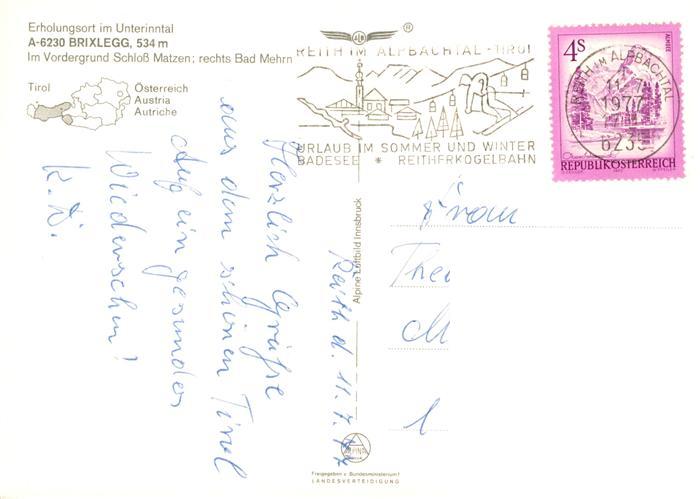 Erholungsort im Unterinntal
A-6230 BRIXLEGG, 534 m
Im Vordergrund Schloß Matzen; rechts Bad Mehrn
Tirol
Österreich
Austria
Autriche
ALM
®
REITH IM ALPBACHTAL - TIROL
URLAUB IM SOMMER UND WINTER
BADESEE * REITHERKOGELBAHN
4S
ALMSEE
REPUBLIK ÖSTERREICH
REITH IM ALPBACHTAL
11.7.
1977
6235
Reith d. 11.7.77
Herzlich Grüße
aus dem schönen Tirol
Auf ein gesundes
Wiedersehen!
K.W.
Frau
Thei
M
1
Alpine Luftbild Innsbruck
ALPINE
Freigegeben v. Bundesministerium f.
LANDESVERTEIDIGUNG